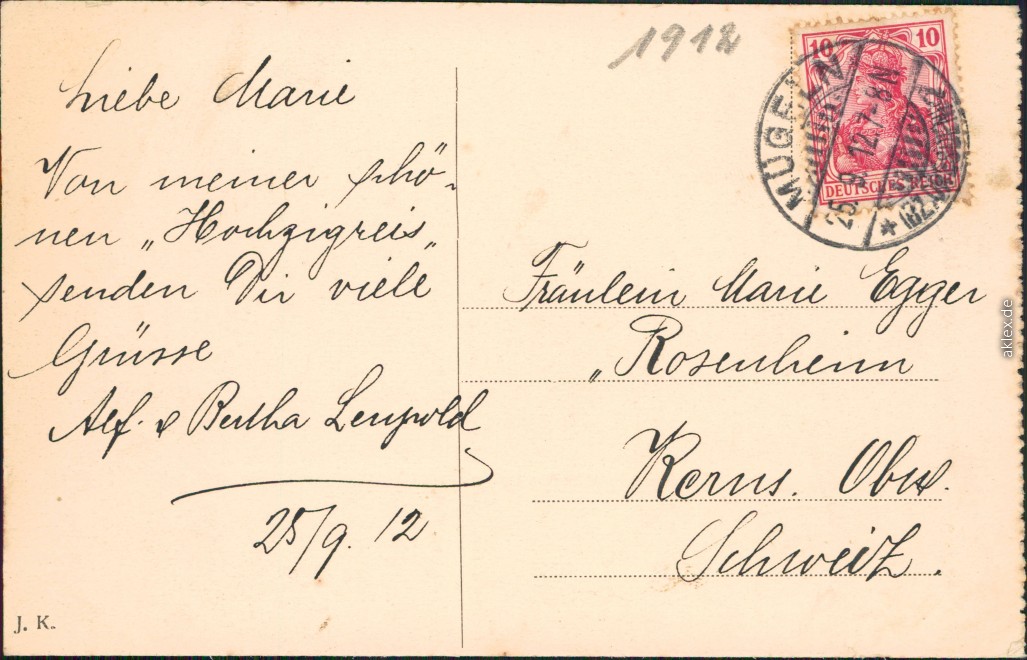 1912
10 10
DEUTSCHES REICH
MÜGELN
25.9.12.7-8N
*(BZ.
Liebe Marie
Von meiner schö-
nen „Hochzigreis"
senden Dir viele
Grüsse
Alf. & Bertha Leupold
25/9. 12
Fräulein Marie Egger
„Rosenheim
Kerns. Obw.
Schweiz.
J. K.
aklex.de